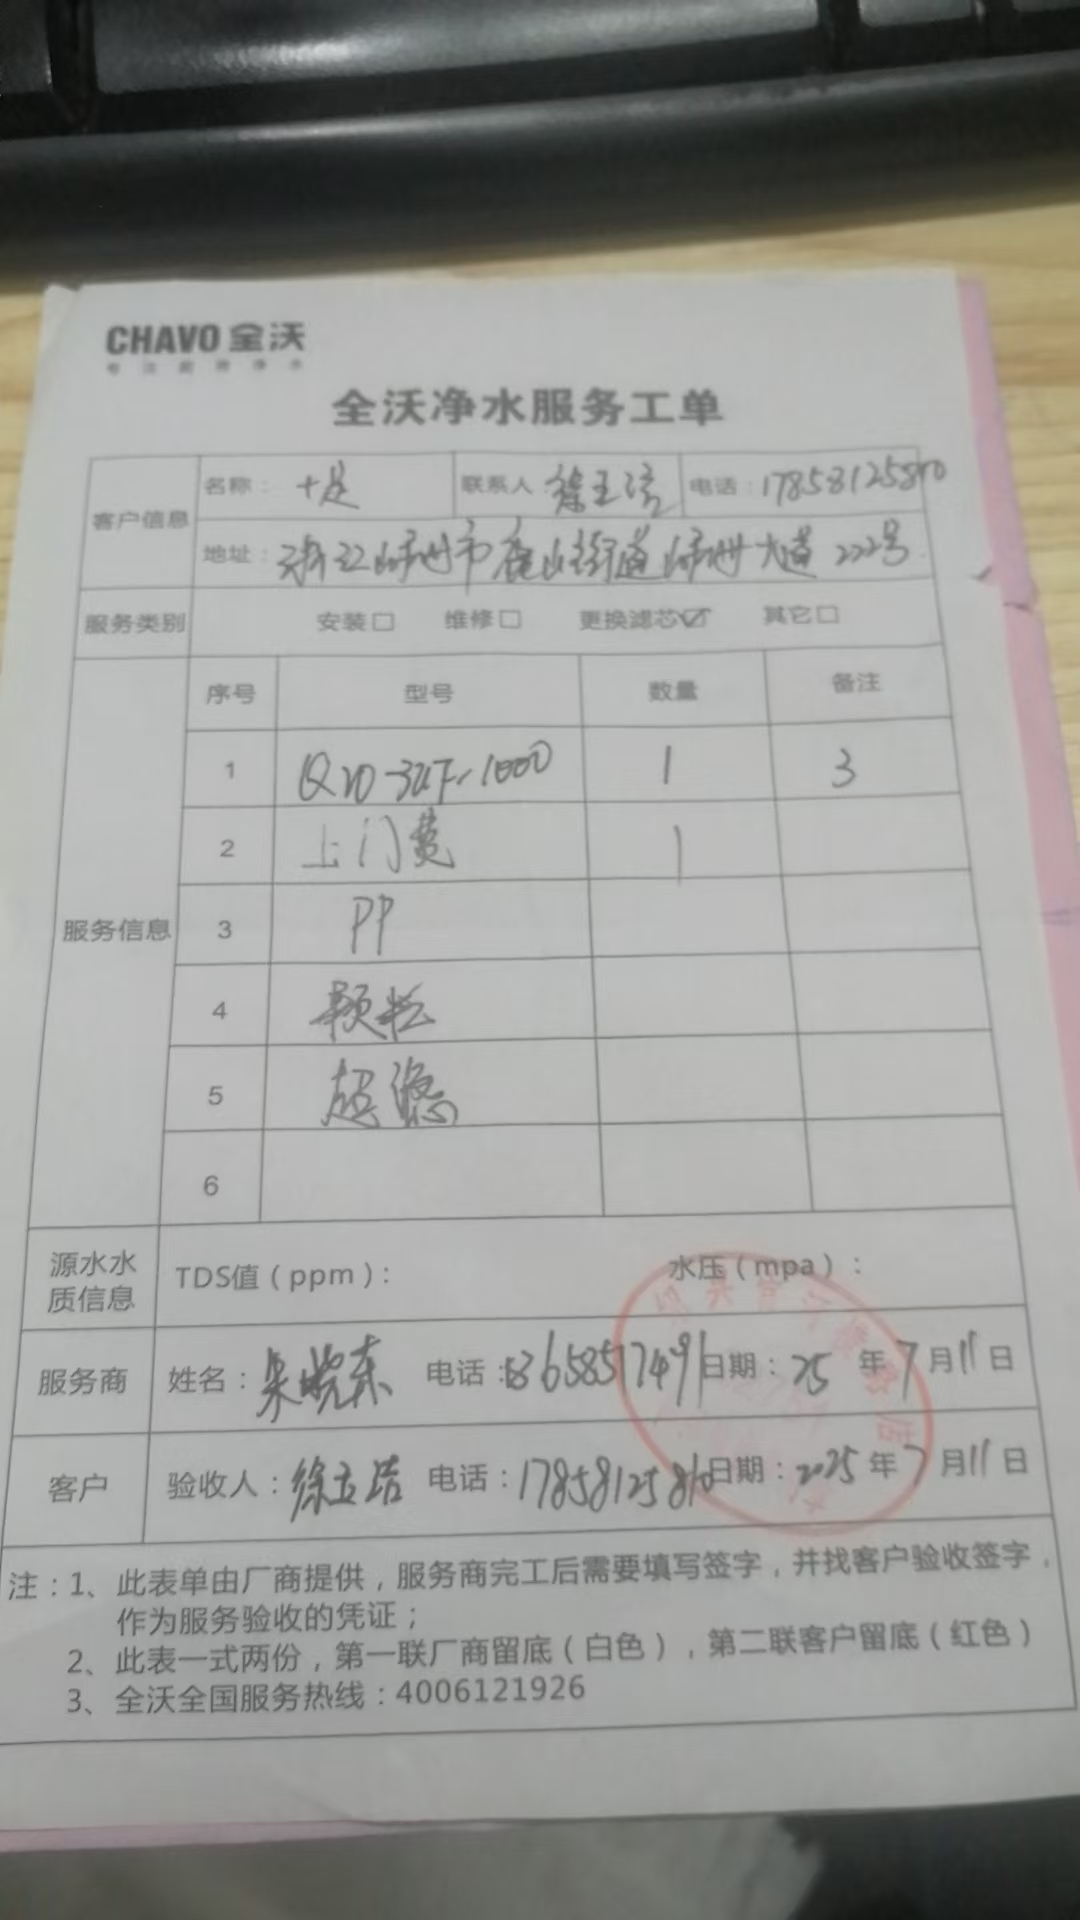 CHAVO 全沃
全沃净水服务工单
客户信息 名称： 十足 联系人： 电话：
地址： 浙江嵊州市鹿山街道嵊州大道222号
服务类别 安装□ 维修□ 更换滤芯☑ 其它□
服务信息 序号 型号 数量 备注
1 1 3
2 上门费 1
3 PP
4 颗粒
5 超滤
6
源水水质信息 TDS值（ppm）： 水压（mpa）：
服务商 姓名：朱晓东 电话： 日期：25 年 7 月 11 日
客户 验收人： 电话：17858125810 日期：2025 年 7 月 11 日
注：1、此表单由厂商提供，服务商完工后需要填写签字，并找客户验收签字，
作为服务验收的凭证；
2、此表一式两份，第一联厂商留底（白色），第二联客户留底（红色）
3、全沃全国服务热线：4006121926